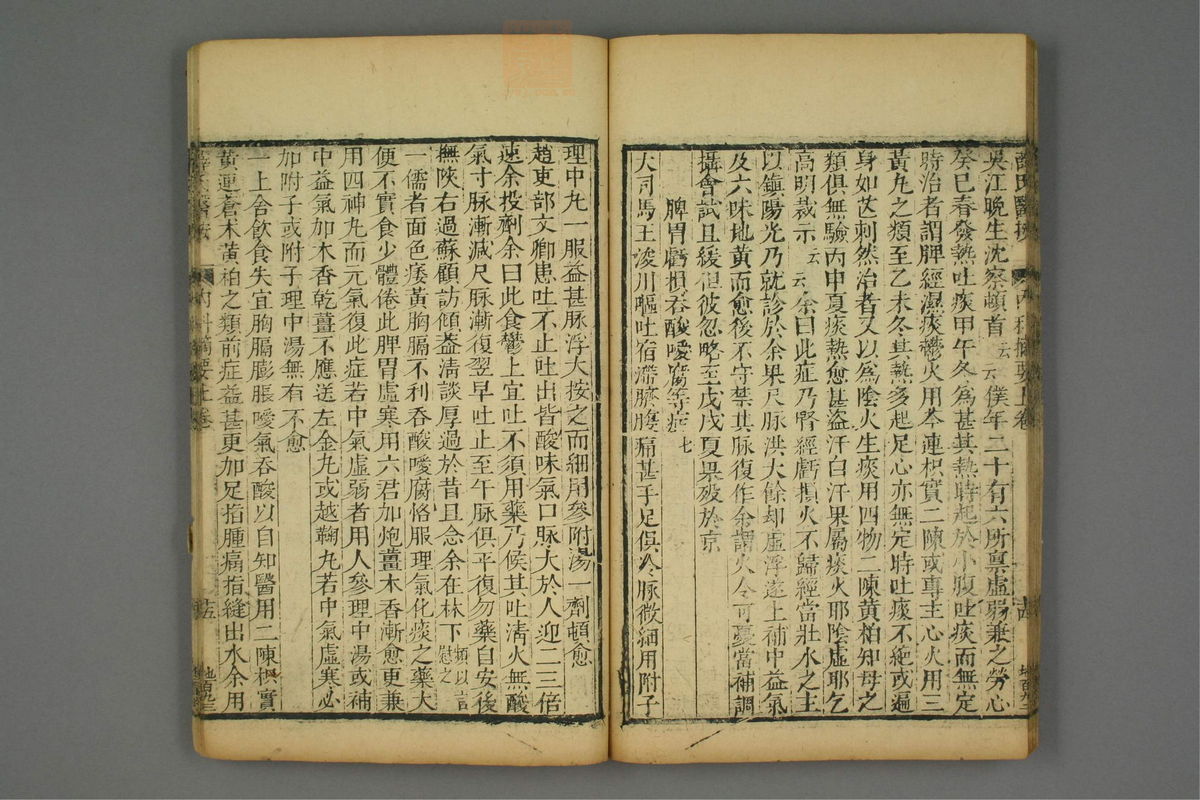 薛氏醫按 內科摘要上卷 古 
吳江晚生沈察頓首云云僕年二十有六所稟虛弱兼之勞心
癸巳春發熱吐痰甲午冬為甚其熱時起於小腹吐痰而無定
時治者謂脾經濕痰鬱火用芩連枳實二陳或專主心火用三
黃丸之類至乙未冬其熱多起足心亦無定時吐痰不絕或遍
身如芒刺然治者又以為陰火生痰用四物二陳黃柏知母之
類俱無驗丙申夏痰熱愈甚盜汗自汗果屬痰火耶陰虛耶乞
高明裁示云云余曰此症乃腎經虧損火不歸經當壯水之主
以鎮陽光乃就診於余果尺脉洪大餘却虛浮遂上補中益氣
及六味地黃而愈後不守禁其脉復作余謂火令可憂當補調
攝會試且緩但彼忽略至戊戌夏果歿於京
脾胃虧損吞酸噯腐等症七
大司馬王浚川嘔吐宿滯臍腹痛甚手足俱冷脉微細用附子
理中丸一服益甚脉浮大按之而細用參附湯一劑頓愈
趙吏部文卿患吐不止吐出皆酸味氣口脉大於人迎二三倍
速余投劑余曰此食鬱上宜吐不須用藥乃候其吐清火無酸
氣寸脉漸減尺脉漸復翌早吐止至午脉俱平復勿藥自安後
撫陝右過蘇顧訪傾蓋清談厚過於昔且念余在林下頻以言慰之
一儒者面色痿黃胸膈不利吞酸噯腐恪服理氣化痰之藥大
便不實食少體倦此脾胃虛寒用六君加炮薑木香漸愈更兼
用四神丸而元氣復此症若中氣虛弱者用人參理中湯或補
中益氣加木香乾薑不應送左金丸或越鞠丸若中氣虛寒必
加附子或附子理中湯無有不愈
一上舍飲食失宜胸膈膨脹噯氣吞酸以自知醫用二陳枳實
黃連蒼术黃柏之類前症益甚更加足指腫痛指縫出水余用
薛氏醫按 內科摘要上卷